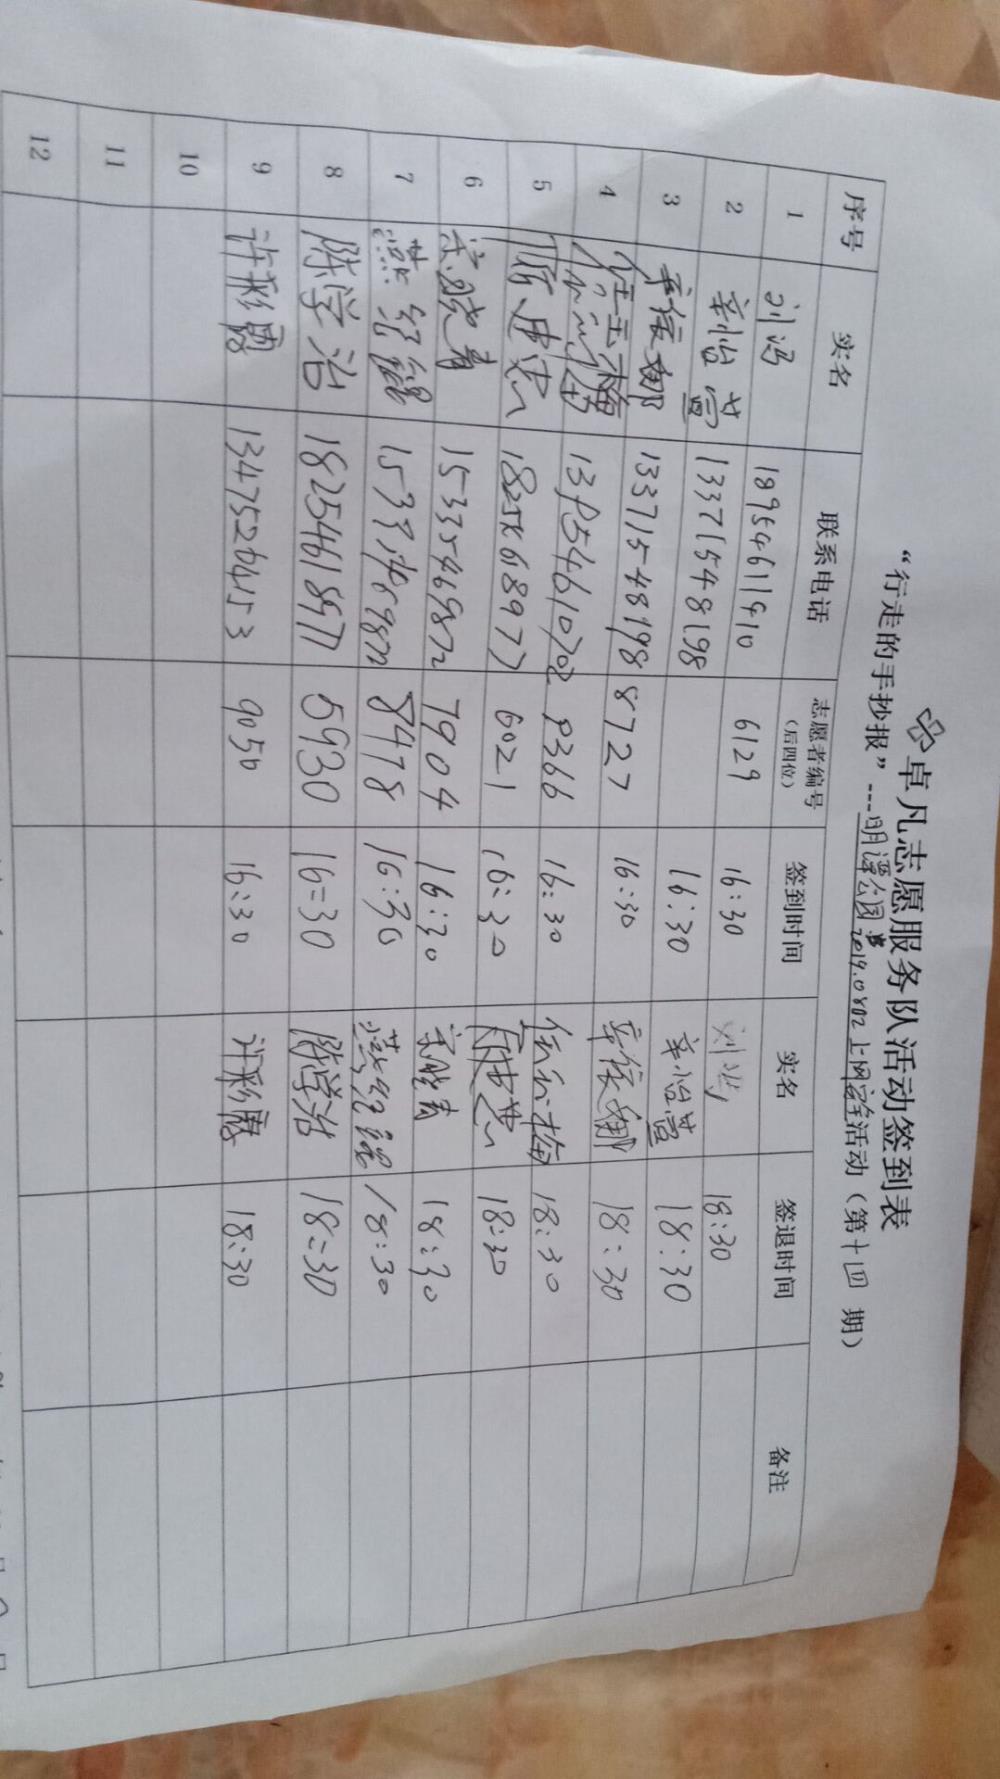 卓凡志愿服务队活动签到表
“行走的手抄报”---明潭公园 2019.0802上网安全活动（第十四 期）
序号 实名 联系电话 志愿者编号（后四位） 签到时间 实名 签退时间 备注
1 刘冯 18954611910 6129 16:30 18:30
2 辛怡萱 13371548198 16:30 辛怡萱 18:30
3 辛俊娜 13371548198 8727 16:30 辛俊娜 18:30
4 任玉梅 13954610702 9366 16:30 任玉梅 18:30
5 6021 16:30 18:30
6 宋晓青 15335469872 7904 16:30 宋晓青 18:30
7 燕 8478 16:30 燕 18:30
8 陈学治 18254618977 5930 16:30 陈学治 18:30
9 许彩霞 13475526453 9050 16:30 许彩霞 18:30
10
11
12